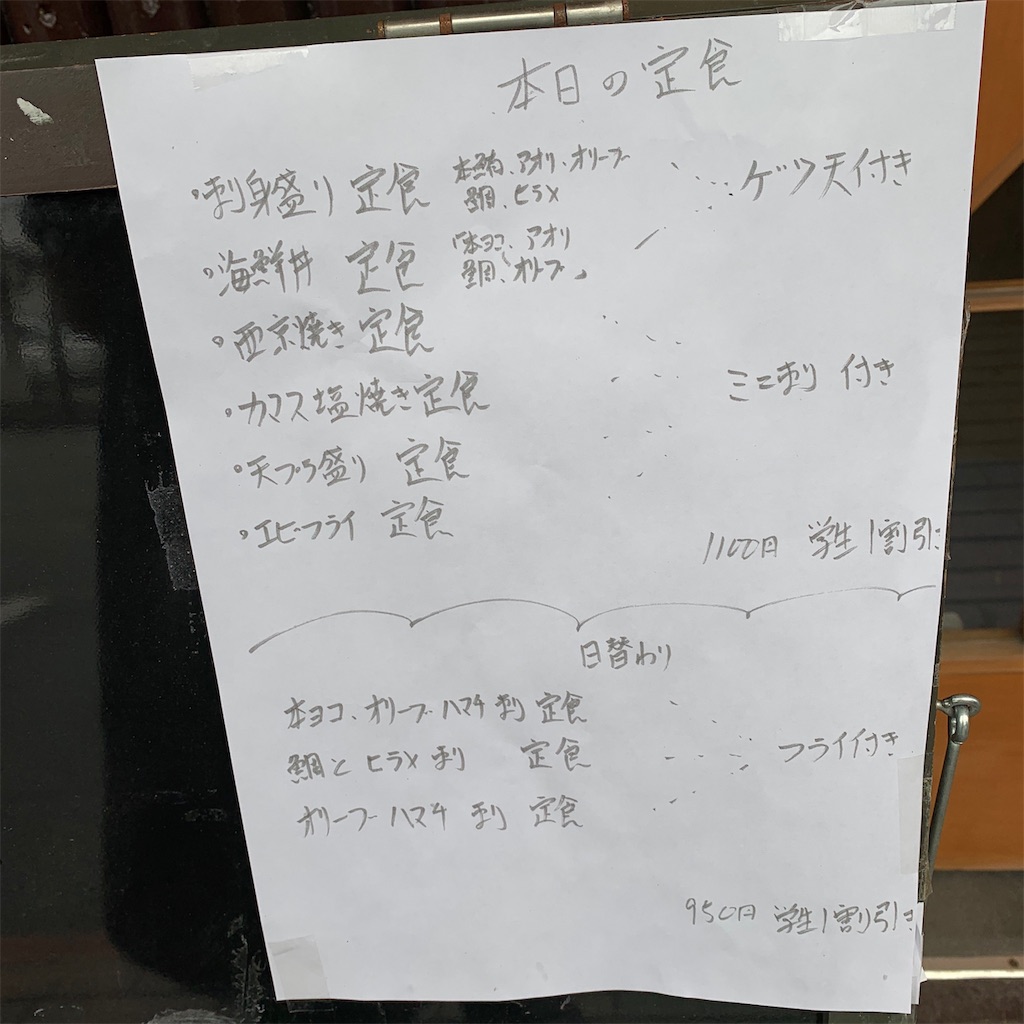 本日の定食
・刺身盛り 定食 本鮪、アオリ・オリーブ
鯛、ヒラメ
ゲソ天付き
・海鮮丼 定食 「本ヨコ、アオリ
鯛、オリーブ」
・西京焼き 定食
・カマス塩焼き定食
ミニ刺 付き
・天プラ盛り 定食
・エビフライ 定食
1100円 学生1割引き
日替わり
本ヨコ、オリーブハマチ刺 定食
鯛と ヒラメ 刺 定食
フライ付き
オリーブハマチ 刺 定食
950円 学生1割引き